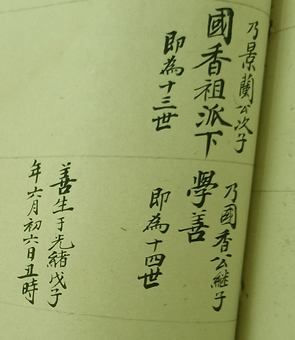 乃景蘭公次子
國香祖派下
即為十三世
乃國香公繼子
學善
即為十四世
善生于光緒戊子
年六月初六日丑時